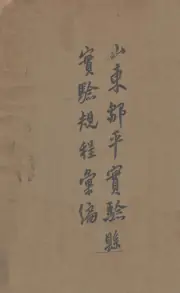 山東鄒平實驗縣
實驗規程彙編